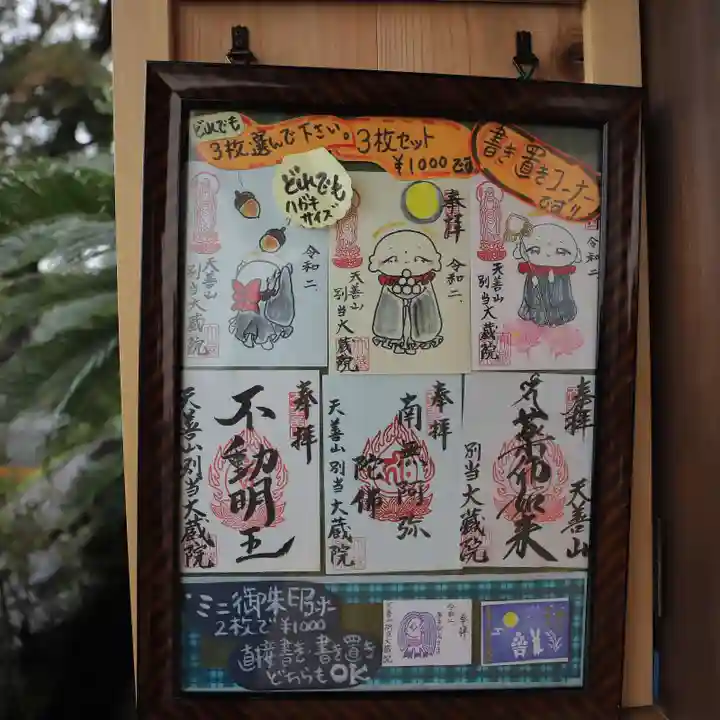 どれでも
3枚選んで下さい。3枚セット
¥1000です
書き置きコーナー
です!!
どれでも
ハガキ
サイズ
令和二、
天善山
別当大蔵院
奉拝
令和二、
天善山
別当大蔵院
令和二、
天善山
別当大蔵院
奉拝
不動明王
天善山別当大蔵院
奉拝
南無阿弥
陀佛
天善山 別当大蔵院
奉拝
薬師如来
天善山
別当大蔵院
ミニ御朱印コーナー
2枚で¥1000
直接書き・書き置き
どちらもOK
奉拝